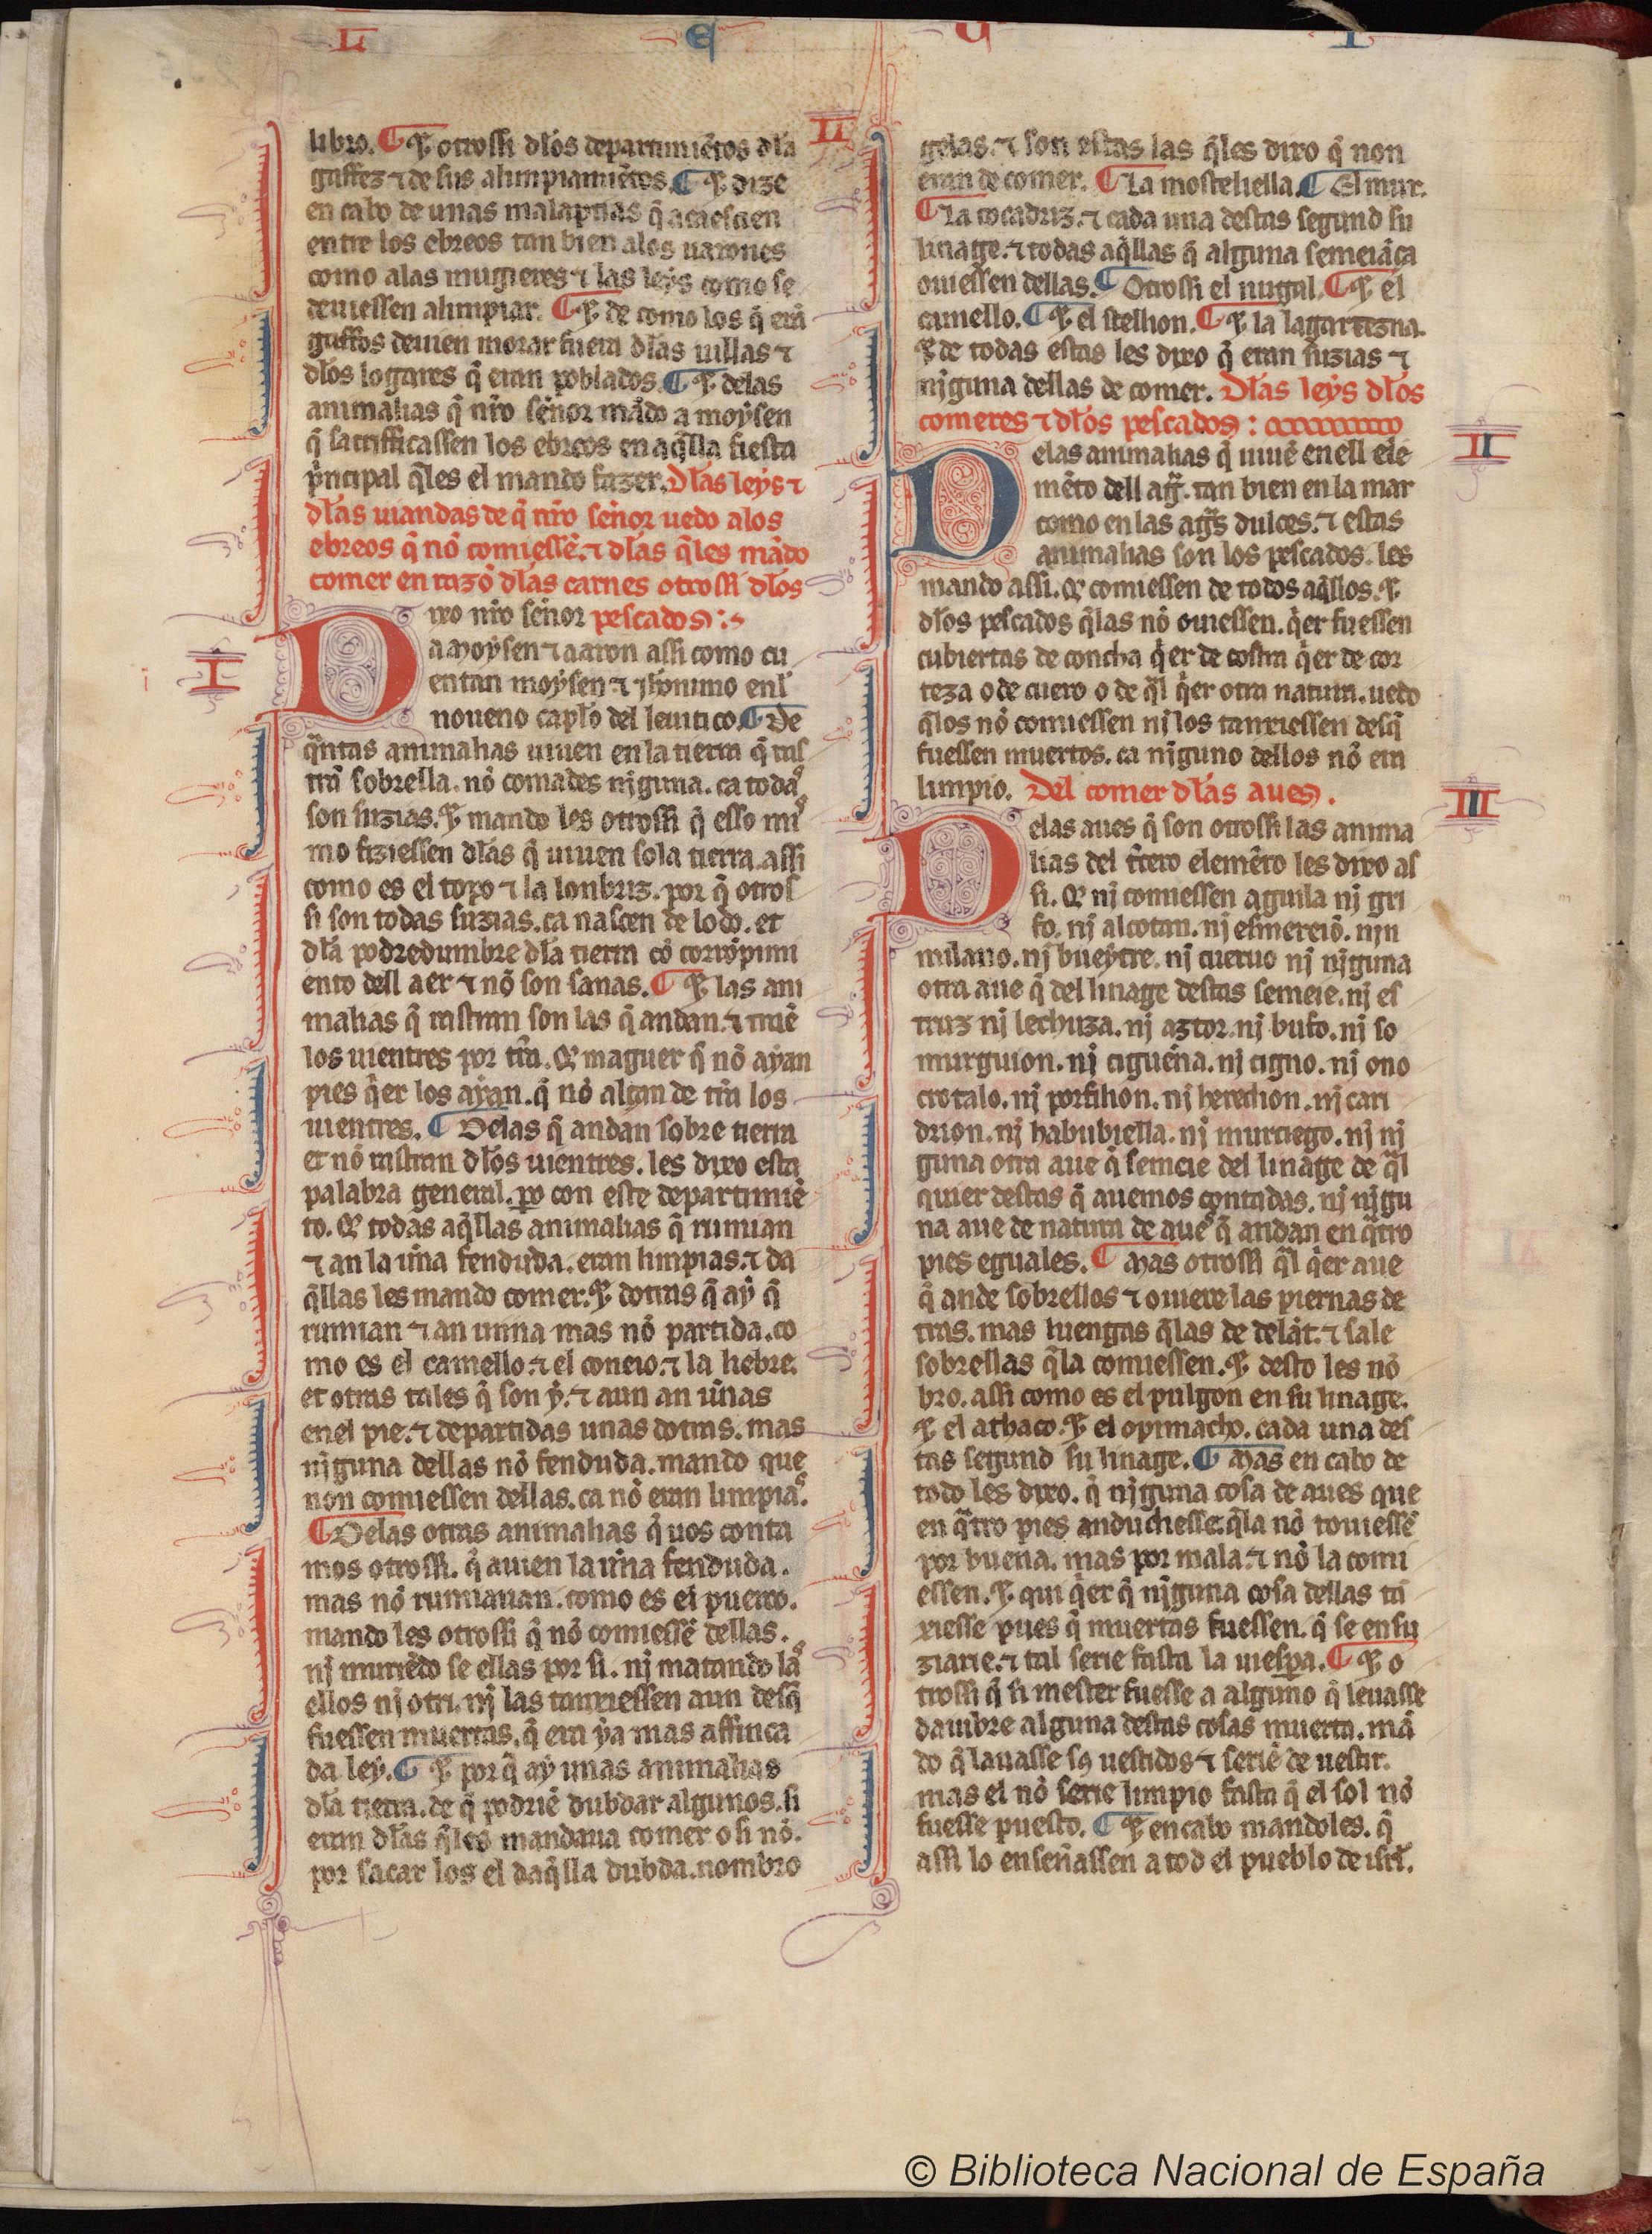 L E U I
II
libro. ¶ ⁊ otrossi dlos departimiẽtos dla
gaffez ⁊ de sus alimpiamiẽtos. ¶ ⁊ dize
en cabo de unas malaptias q̃ acaescien
entre los ebreos tan bien alos uarones
como alas mugieres ⁊ las leẏs como se
deuiessen alimpiar. ¶ ⁊ de como los q̃ erã
gaffos deuien morar fuera dlas uillas ⁊
dlos logares q̃ eran poblados. ¶ ⁊ delas
animalias q̃ nr̃o sẽnor mãdo a moẏsen
q̃ sacrifficassen los ebreos en aq̃lla fiesta
p̃ncipal q̃les el mando fazer. Dlas leẏs ⁊
dlas uiandas de q̃ nr̃o sẽnor uedo alos
ebreos q̃ nõ comiessẽ. ⁊ dlas q̃les mãdo
comer en razõ dlas carnes otrossi dlos
pescados :~
I
Dixo nr̃o sẽnor
a moẏsen ⁊ aaron assi como cu
entan moẏsen ⁊ iħonimo enl
noueno capło del leuitico. ¶ De
q̃ntas animalias uiuen en la tierra q̃ ras
trã sobrella. nõ comades nĩguna. ca todas
son suzias. ⁊ mando les otrossi q̃ esso mis
mo fiziessen dlas q̃ uiuen sola tierra. assi
como es el topo ⁊ la lonbriz. por q̃ otros
si son todas suzias. ca nascen de lodo. et
dla podredumbre dla tierra cõ corrõpimi
ento dell aer ⁊ nõ son sanas. ¶ ⁊ las ani
malias q̃ rastran son las q̃ andan. ⁊ traẽ
los uientres por tr̃a. Q̃ maguer q̃ nõ aẏan
pies q̃er los aẏan. q̃ nõ alçan de tr̃a los
uientres. ¶ Delas q̃ andan sobre tierra
et nõ rastran dlos uientres. les dixo esta
palabra general. ꝑo con este departimiẽ
to. Q̃ todas aq̃llas animalias q̃ rumian
⁊ an la uña fenduda. eran limpias. ⁊ da
q̃llas les mando comer. ⁊ dotras q̃ aẏ q̃
rumian ⁊ an unna mas nõ partida. co
mo es el camello. ⁊ el coneio. ⁊ la liebre.
et otras tales q̃ son ẏ. ⁊ aun an uñas
en el pie. ⁊ departidas unas dotras. mas
nĩguna dellas nõ fenduda. mando que
non comiessen dellas. ca nõ eran limpias.
¶ Delas otras animalias q̃ uos conta
mos otrossi. q̃ auien la uña fenduda.
mas nõ rumiauan. como es el puerco.
mando les otrossi q̃ nõ comiessẽ dellas.
nj muriẽdo se ellas por si. nj matando las
ellos nj otri. nj las tanxiessen aun desq̃
fuessen muertas. q̃ era ẏa mas affinca
da leẏ. ¶ ⁊ por q̃ aẏ unas animalias
dla tierra. de q̃ podriẽ dubdar algunos. si
eran dlas q̃les mandaua comer o si nõ.
por sacar los el daq̃lla dubda. nombro
gelas. ⁊ son estas las q̃les dixo q̃ non
eran de comer. ¶ La mosteliella. ¶ El mur.
¶ La cocadriz. ⁊ cada una destas segund su
linage. ⁊ todas aq̃llas q̃ alguna semeiãça
ouiessen dellas. ¶ Otrossi el mugal. ¶ ⁊ el
camello. ¶ ⁊ el stellion. ¶ ⁊ la lagartezna.
⁊ de todas estas les dixo q̃ eran suzias ⁊
nĩguna dellas de comer. Dlas leẏs dlos
comeres ⁊ dlos pescados :
II
Delas animalias q̃ uiuẽ en ell ele
mẽto dell ag̃. tan bien en la mar
como en las ag̃s dulces. ⁊ estas
animalias son los pescados. les
mando assi. Q̃ comiessen de todos aq̃llos. ⁊
dlos pescados q̃las nõ ouiessen. q̃er fuessen
cubiertas de concha q̃er de costra q̃er de cor
teza o de cuero o de q̃l q̃er otra natura. uedo
q̃los nõ comiessen nj los tanxiessen desq̃
fuessen muertos. ca nĩguno dellos nõ era
limpio. Del comer dlas aues.
III
Delas aues q̃ son otrossi las anima
lias del t̃cero elemẽto les dixo as
si. Q̃ nj comiessen aguila nj gri
fo. nj alcotan. nj esmereiõ. njn
milano. nj bueẏtre. nj cueruo nj nĩguna
otra aue q̃ del linage destas semeie. nj es
truz nj lechuza. nj aztor. nj bufo. nj so
murguion. nj cigueña. nj cigno. nj ono
crotalo. nj porfilion. nj herechon. nj cari
drion. nj habubiella. nj murciego. nj nĩ
guna otra aue q̃ semeie del linage de q̃l
quier destas q̃ auemos contadas. nj nĩgu
na aue de natura de aues q̃ andan en q̃tro
pies eguales. ¶ Mas otrossi q̃l q̃er aue
q̃ ande sobrellos ⁊ ouiere las piernas de
tras. mas luengas q̃las de delãt. ⁊ sale
sobrellas q̃la comiessen. ⁊ desto les nõ
bro. assi como es el pulgon en su linage.
⁊ el athaco. ⁊ el opimacho. cada una des
tas segund su linage. ¶ Mas en cabo de
todo les dixo. q̃ nĩguna cosa de aues que
en q̃tro pies anduchesse. q̃la nõ touiessẽ
por buena. mas por mala. ⁊ nõ la comi
essen. ⁊ qui q̃er q̃ nĩguna cosa dellas tã
xiesse pues q̃ muertas fuessen. q̃ se ensu
ziarie. ⁊ tal serie fasta la uiespa. ¶ ⁊ o
trossi q̃ si mester fuesse a alguno q̃ leuasse
daubre alguna destas cosas muerta. mã
do q̃ lauasse sus uestidos ⁊ seriẽ de uestir.
mas el nõ serie limpio fasta q̃ el sol nõ
fuesse puesto. ¶ ⁊ en cabo mandoles. q̃
assi lo enseñassen a tod el pueblo de isrł.
© Biblioteca Nacional de España